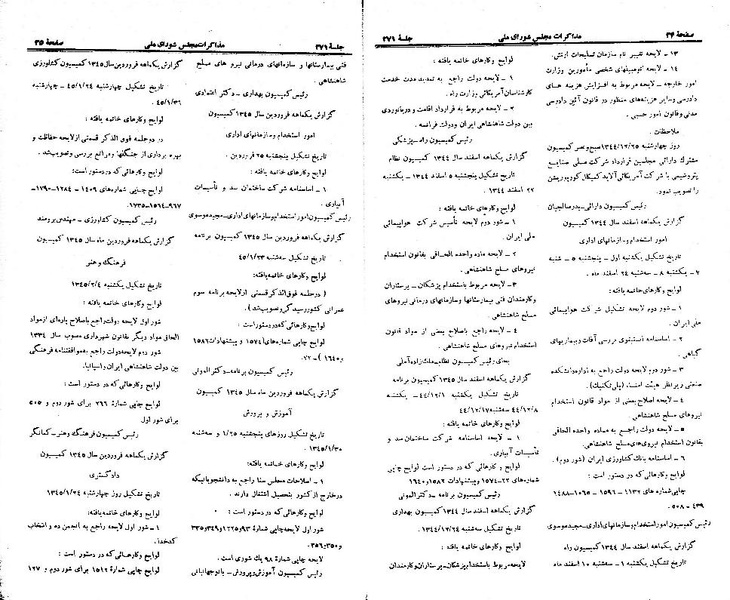 صفحهٔ ۳۴ مذاکرات مجلس شورای ملی جلسهٔ ۲۷۱
۱۳ - لایحه تغییر نام سازمان تسلیحات ارتش.
۱۴ - لایحه کومبیلهای شخصی مأمورین وزارت
امور خارجه - لایحه مربوط به افزایش هزینه های
دادرسی و سایر هزینه‌های منظور در قانون آئین دادرسی
مدنی و قانون امور حسبی.
ملاحظات
روز چهارشنبه ۱۳۴۴/۱۲/۲۵ صبح و عصر کمیسیون
مشترک دارائی و مجلسین قرارداد شرکت ملی صنایع
پتروشیمی با شرکت آمریکائی آلاید کمیکال کورپوریشن
را تصویب نمود.
رئیس کمیسیون دارائی - صدر صالحیان
گزارش یکماهه اسفند سال ۱۳۴۴ کمیسیون
امور استخدام و سازمانهای اداری
تاریخ تشکیل یکشنبه اول - پنجشنبه ۵ - شنبه
۷ - یکشنبه ۸ - سه‌شنبه ۲۴ اسفند ماه.
لوایح و کارهای خاتمه یافته:
۱ - شور دوم لایحه تشکیل شرکت هواپیمائی
ملی ایران.
۲ - اساسنامه انستیتوی بررسی آفات و بیماریهای
گیاهی.
۳ - شور دوم لایحه دولت راجع به اداره دانشکده
صنعتی زیر نظر هیئت امناء. (پلی‌تکنیک)
۴ - لایحه اصلاح بعضی از مواد قانون استخدام
نیروهای مسلح شاهنشاهی.
۵ - لایحه دولت راجع به ماده واحده الحاقی
بقانون استخدام نیروی‌های مسلح شاهنشاهی.
۶ - اساسنامه بانک کشاورزی ایران (شور دوم).
لوایح و کارهائی که در دستور است:
چاپی شماره‌های ۱۱۳۲ - ۱۰۹۶ - ۱۰۶۵ - ۱۴۸۸
۴۳۹ - ۵۰۸.
رئیس کمیسیون امور استخدام و سازمانهای اداری - مجید موسوی
گزارش یکماهه اسفند سال ۱۳۴۴ کمیسیون راه
تاریخ تشکیل یکشنبه ۱ - سه‌شنبه ۱۰ اسفند ماه
لوایح و کارهای خاتمه یافته:
۱ - لایحه دولت راجع به تمدید مدت خدمت
کارشناسان آمریکائی وزارت راه.
۲ - لایحه مربوط به قرارداد اقامت و دریانوردی
بین دولت شاهنشاهی ایران و دولت فرانسه.
رئیس کمیسیون راه - پزشکی
گزارش یکماهه اسفند سال ۱۳۴۴ کمیسیون نظام
تاریخ تشکیل پنجشنبه ۵ اسفند ۱۳۴۴ - یکشنبه
۲۲ اسفند ۱۳۴۴
لوایح و کارهای خاتمه یافته:
۱ - شور دوم لایحه تأسیس شرکت هواپیمائی
ملی ایران.
۲ - لایحه ماده واحده الحاقی بقانون استخدام
نیروهای مسلح شاهنشاهی.
۳ - لایحه مربوط باستخدام پزشکان - پرستاران و
کارمندان فنی بیمارستانها و سازمانهای درمانی نیروهای
مسلح شاهنشاهی.
۴ - لایحه راجع باصلاح بعضی از مواد قانون
استخدام نیروهای مسلح شاهنشاهی.
بجای رئیس کمیسیون نظام - ملک‌زاده آملی
گزارش یکماهه اسفند سال ۱۳۴۵ کمیسیون برنامه
تاریخ تشکیل یکشنبه ۴۴/۱۲/۱ - یکشنبه
۴۴/۱۲/۸ - سه‌شنبه ۴۴/۱۲/۱۷
لوایح و کارهای خاتمه یافته:
۱ - لایحه اساسنامه شرکت ساختمان سد و
تأسیسات آبیاری.
لوایح و کارهائی که در دستور است لوایح چاپی
شماره‌های ۲۲ - ۱۵۷۴ و پیشنهادات ۱۵۸۲ و ۱۶۴۰
رئیس کمیسیون برنامه - دکتر الموتی
گزارش یکماهه اسفند سال ۱۳۴۴ کمیسیون بهداری
تاریخ تشکیل سه‌شنبه ۱۳۴۴/۱۲/۲۴
لوایح و کارهای خاتمه یافته:
لایحه مربوط باستخدام پزشکان - پرستاران و کارمندان
جلسهٔ ۲۷۱ مذاکرات مجلس شورای ملی صفحهٔ ۳۵
فنی بیمارستانها و سازمانهای درمانی نیرو های مسلح
شاهنشاهی.
رئیس کمیسیون بهداری - دکتر اعتمادی
گزارش یکماهه فروردین سال ۱۳۴۵ کمیسیون
امور استخدام و سازمانهای اداری
تاریخ تشکیل پنجشنبه ۲۵ فروردین.
لوایح و کارهای خاتمه یافته:
۱ - اساسنامه شرکت ساختمان سد و تأسیسات
آبیاری.
رئیس کمیسیون امور استخدام و سازمانهای اداری - مجید موسوی
گزارش یکماهه فروردین سال ۱۳۴۵ کمیسیون برنامه
تاریخ تشکیل سه‌شنبه ۴۵/۱/۲۳
لوایح و کارهای خاتمه یافته:
(در جلسه فوق‌الذکر قسمتی از لایحه برنامه سوم
عمرانی کشور رسیدگی و تصویب شد).
لوایح و کارهائی که در دستور است:
چاپی شماره‌های (۱۵۷۴ و پیشنهادات ۱۵۸۲
و ۱۶۴۰) - ۲۲.
رئیس کمیسیون برنامه - دکتر الموتی
گزارش یکماهه فروردین ماه سال ۱۳۴۵ کمیسیون
آموزش و پرورش
تاریخ تشکیل روزهای پنجشنبه ۱/۲۵ و سه‌شنبه
۱۳۴۵/۱/۳۰
لوایح و کارهای خاتمه یافته:
۱ - اصلاحات مجلس سنا راجع به دانشجویانیکه
در خارج از کشور بتحصیل اشتغال دارند.
لوایح و کارهائی که در دستور است:
شور اول لایحه چاپی شماره ۹۳ و ۱۲۲۵ و ۳۴۹ و ۳۳۵
و ۳۵۰ و ۳۵۶.
لایحه چاپی شماره ۹۸ یک شوری است.
رئیس کمیسیون آموزش و پرورش - بانو جهانبانی
گزارش یکماهه فروردین سال ۱۳۴۵ کمیسیون کشاورزی
تاریخ تشکیل چهارشنبه ۴۵/۱/۲۴ چهارشنبه
۴۵/۱/۳۱
لوایح و کارهای خاتمه یافته:
در دو جلسه فوق الذکر قسمتی از لایحه حفاظت و
بهره برداری از جنگلها و مراتع بررسی و تصویب شد.
لوایح و کارهائی که در دستور است:
لوایح چاپی شماره‌های ۱۴۰۹ - ۱۲۸۴ - ۱۷۹۰ -
۹۶۷ - ۱۵۱۴ - ۱۷۳۵.
رئیس کمیسیون کشاورزی - مهندس برومند
گزارش یکماهه فروردین ماه سال ۱۳۴۵ کمیسیون
فرهنگ و هنر
تاریخ تشکیل یکشنبه ۱۳۴۵/۲/۴
لوایح و کارهای خاتمه یافته:
شور اول لایحه دولت راجع باصلاح پاره‌ای از مواد و
الحاق مواد دیگر بقانون شهرداری مصوب سال ۱۳۳۴
شور دوم لایحه دولت راجع به موافقتنامه فرهنگی
بین دولت شاهنشاهی ایران و اسپانیا.
لوایح و کارهائی که در دستور است:
لوایح چاپی شماره ۲۶۶ برای شور دوم و ۵۰۵
برای شور اول
رئیس کمیسیون فرهنگ و هنر - کمانگر
گزارش یکماهه فروردین سال ۱۳۴۵ کمیسیون
دادگستری
تاریخ تشکیل روز چهارشنبه ۱۳۴۵/۱/۲۴
لوایح و کارهای خاتمه یافته:
۱ - شور اول لایحه راجع به انجمن ده و انتخاب
کدخدا.
لوایح و کارهائی که در دستور است:
لوایح چاپی شماره ۱۵۱۲ برای شور دوم و ۱۲۷